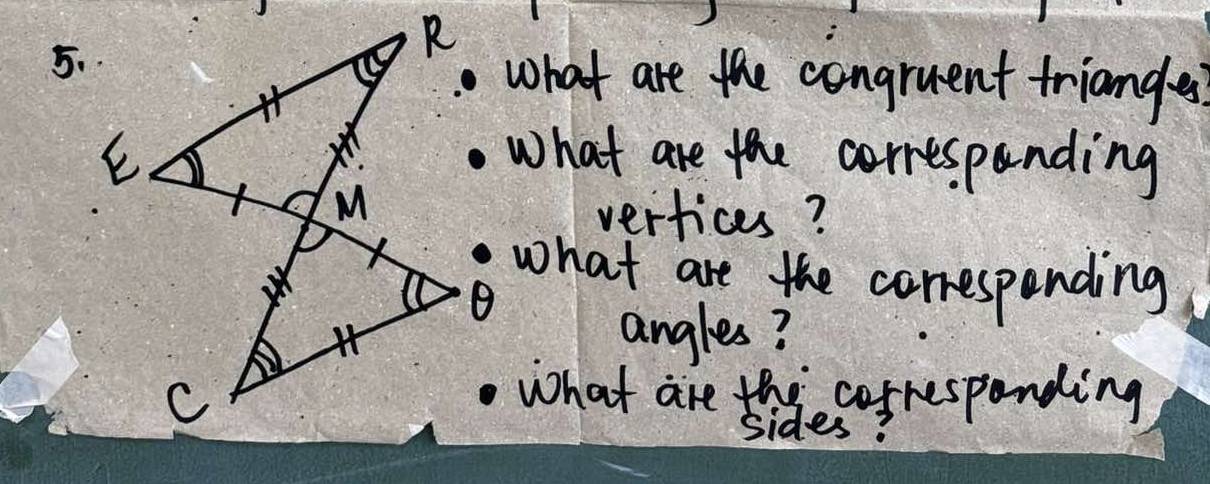 5.
R
E
M
θ
C
• What are the congruent triangles?
• What are the corresponding
vertices ?
• What are the corresponding
angles ?
• What are the corresponding
sides ?